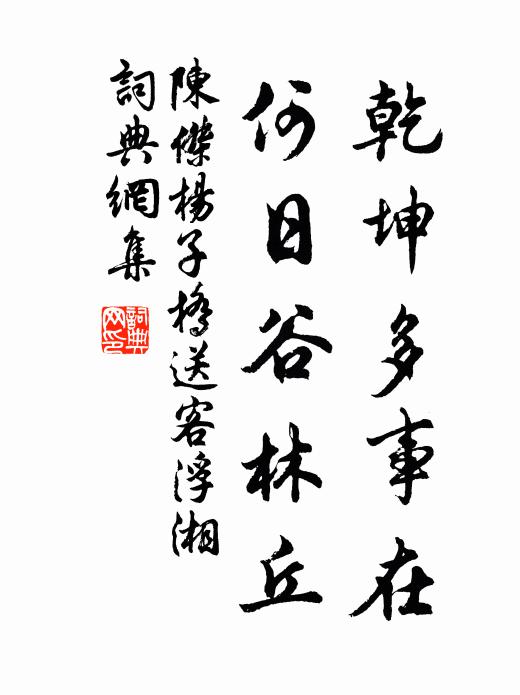 乾坤多事在
何日谷林丘
陳傑楊子橋送客浮湘
詞典網集
詞典网印